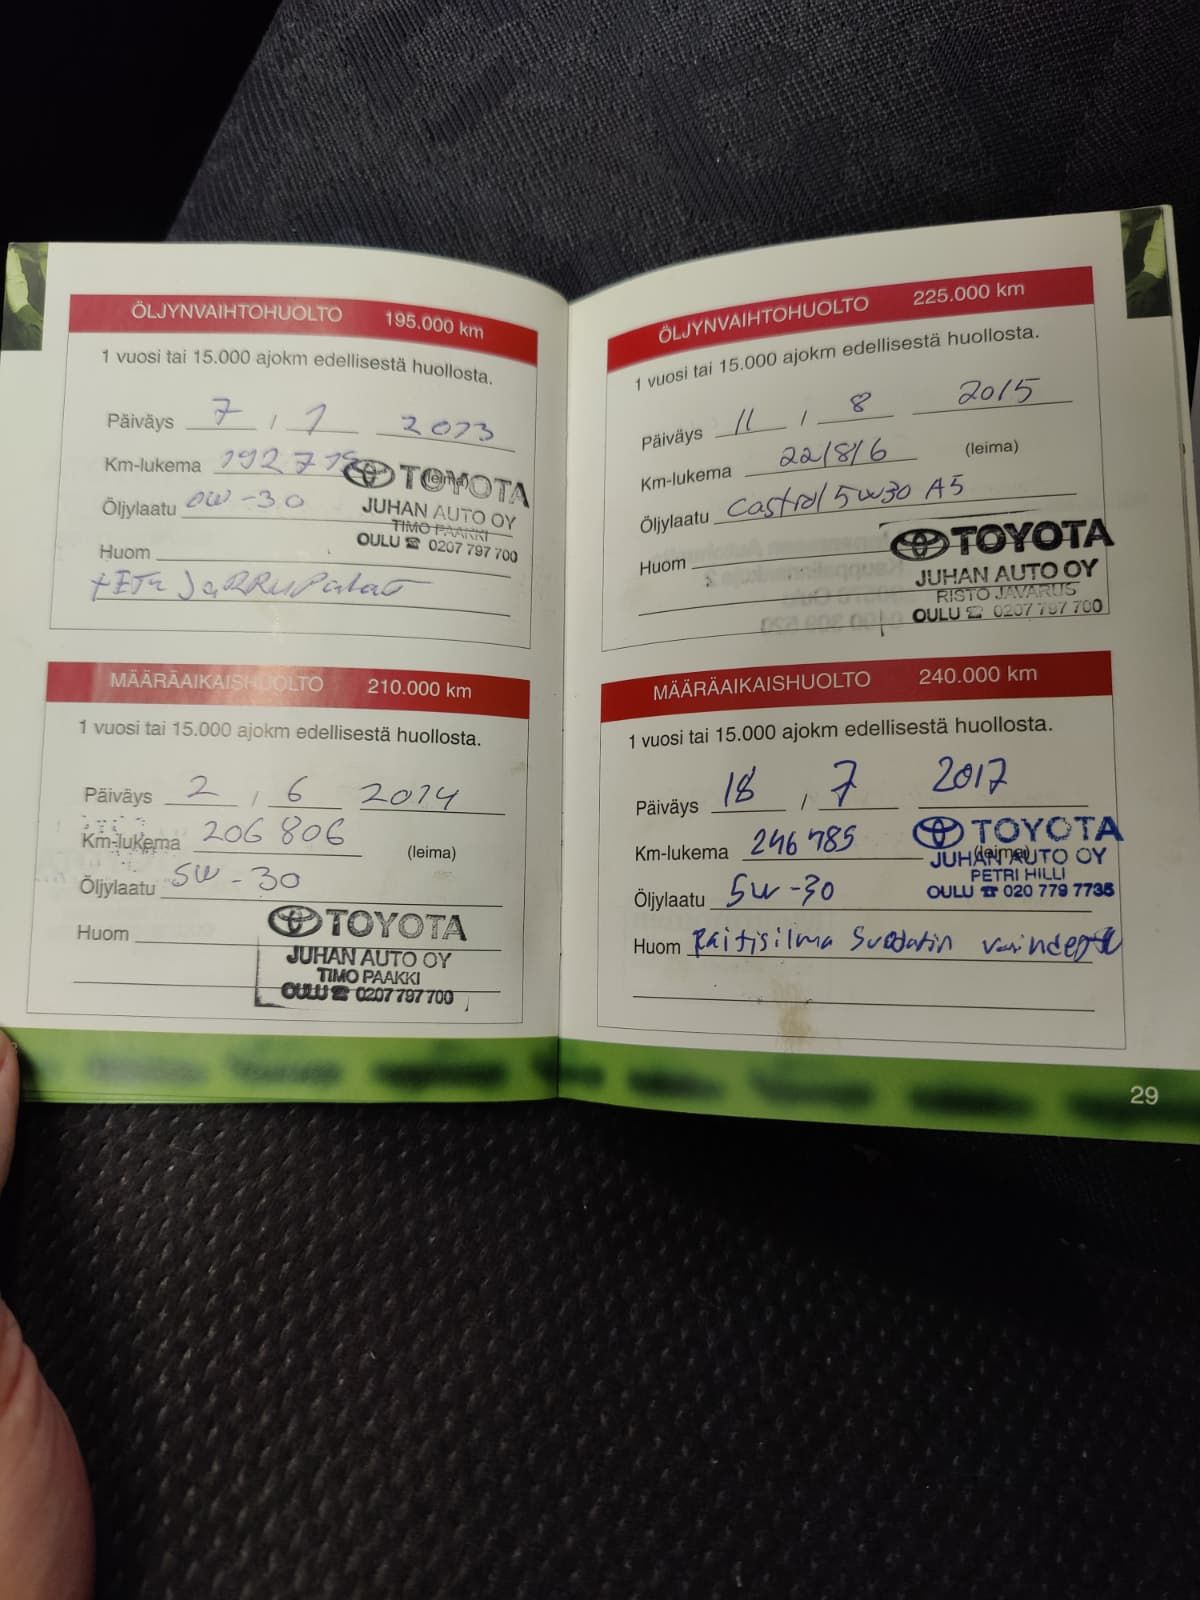 ÖLJYNVAIHTOHUOLTO 195.000 km
1 vuosi tai 15.000 ajokm edellisestä huollosta.
Päiväys 7 / 1 2013
Km-lukema 192 719 (leima)
TOYOTA
JUHAN AUTO OY
TIMO PAAKKI
OULU ☎ 0207 797 700
Öljylaatu 0W-30
Huom
+ETU JaRRuPalat
MÄÄRÄAIKAISHUOLTO 210.000 km
1 vuosi tai 15.000 ajokm edellisestä huollosta.
Päiväys 2 / 6 2014
Km-lukema 206 806 (leima)
Öljylaatu 5W-30
Huom
TOYOTA
JUHAN AUTO OY
TIMO PAAKKI
OULU ☎ 0207 797 700
ÖLJYNVAIHTOHUOLTO 225.000 km
1 vuosi tai 15.000 ajokm edellisestä huollosta.
Päiväys 11 / 8 2015
Km-lukema 221816 (leima)
Öljylaatu Castrol 5w30 A5
Huom
TOYOTA
JUHAN AUTO OY
RISTO JAVARUS
OULU ☎ 0207 797 700
MÄÄRÄAIKAISHUOLTO 240.000 km
1 vuosi tai 15.000 ajokm edellisestä huollosta.
Päiväys 18 / 7 2017
Km-lukema 246 785 (leima)
TOYOTA
JUHAN AUTO OY
PETRI HILLI
OULU ☎ 020 779 7735
Öljylaatu 5W-30
Huom Raitisilma Suodatin
29